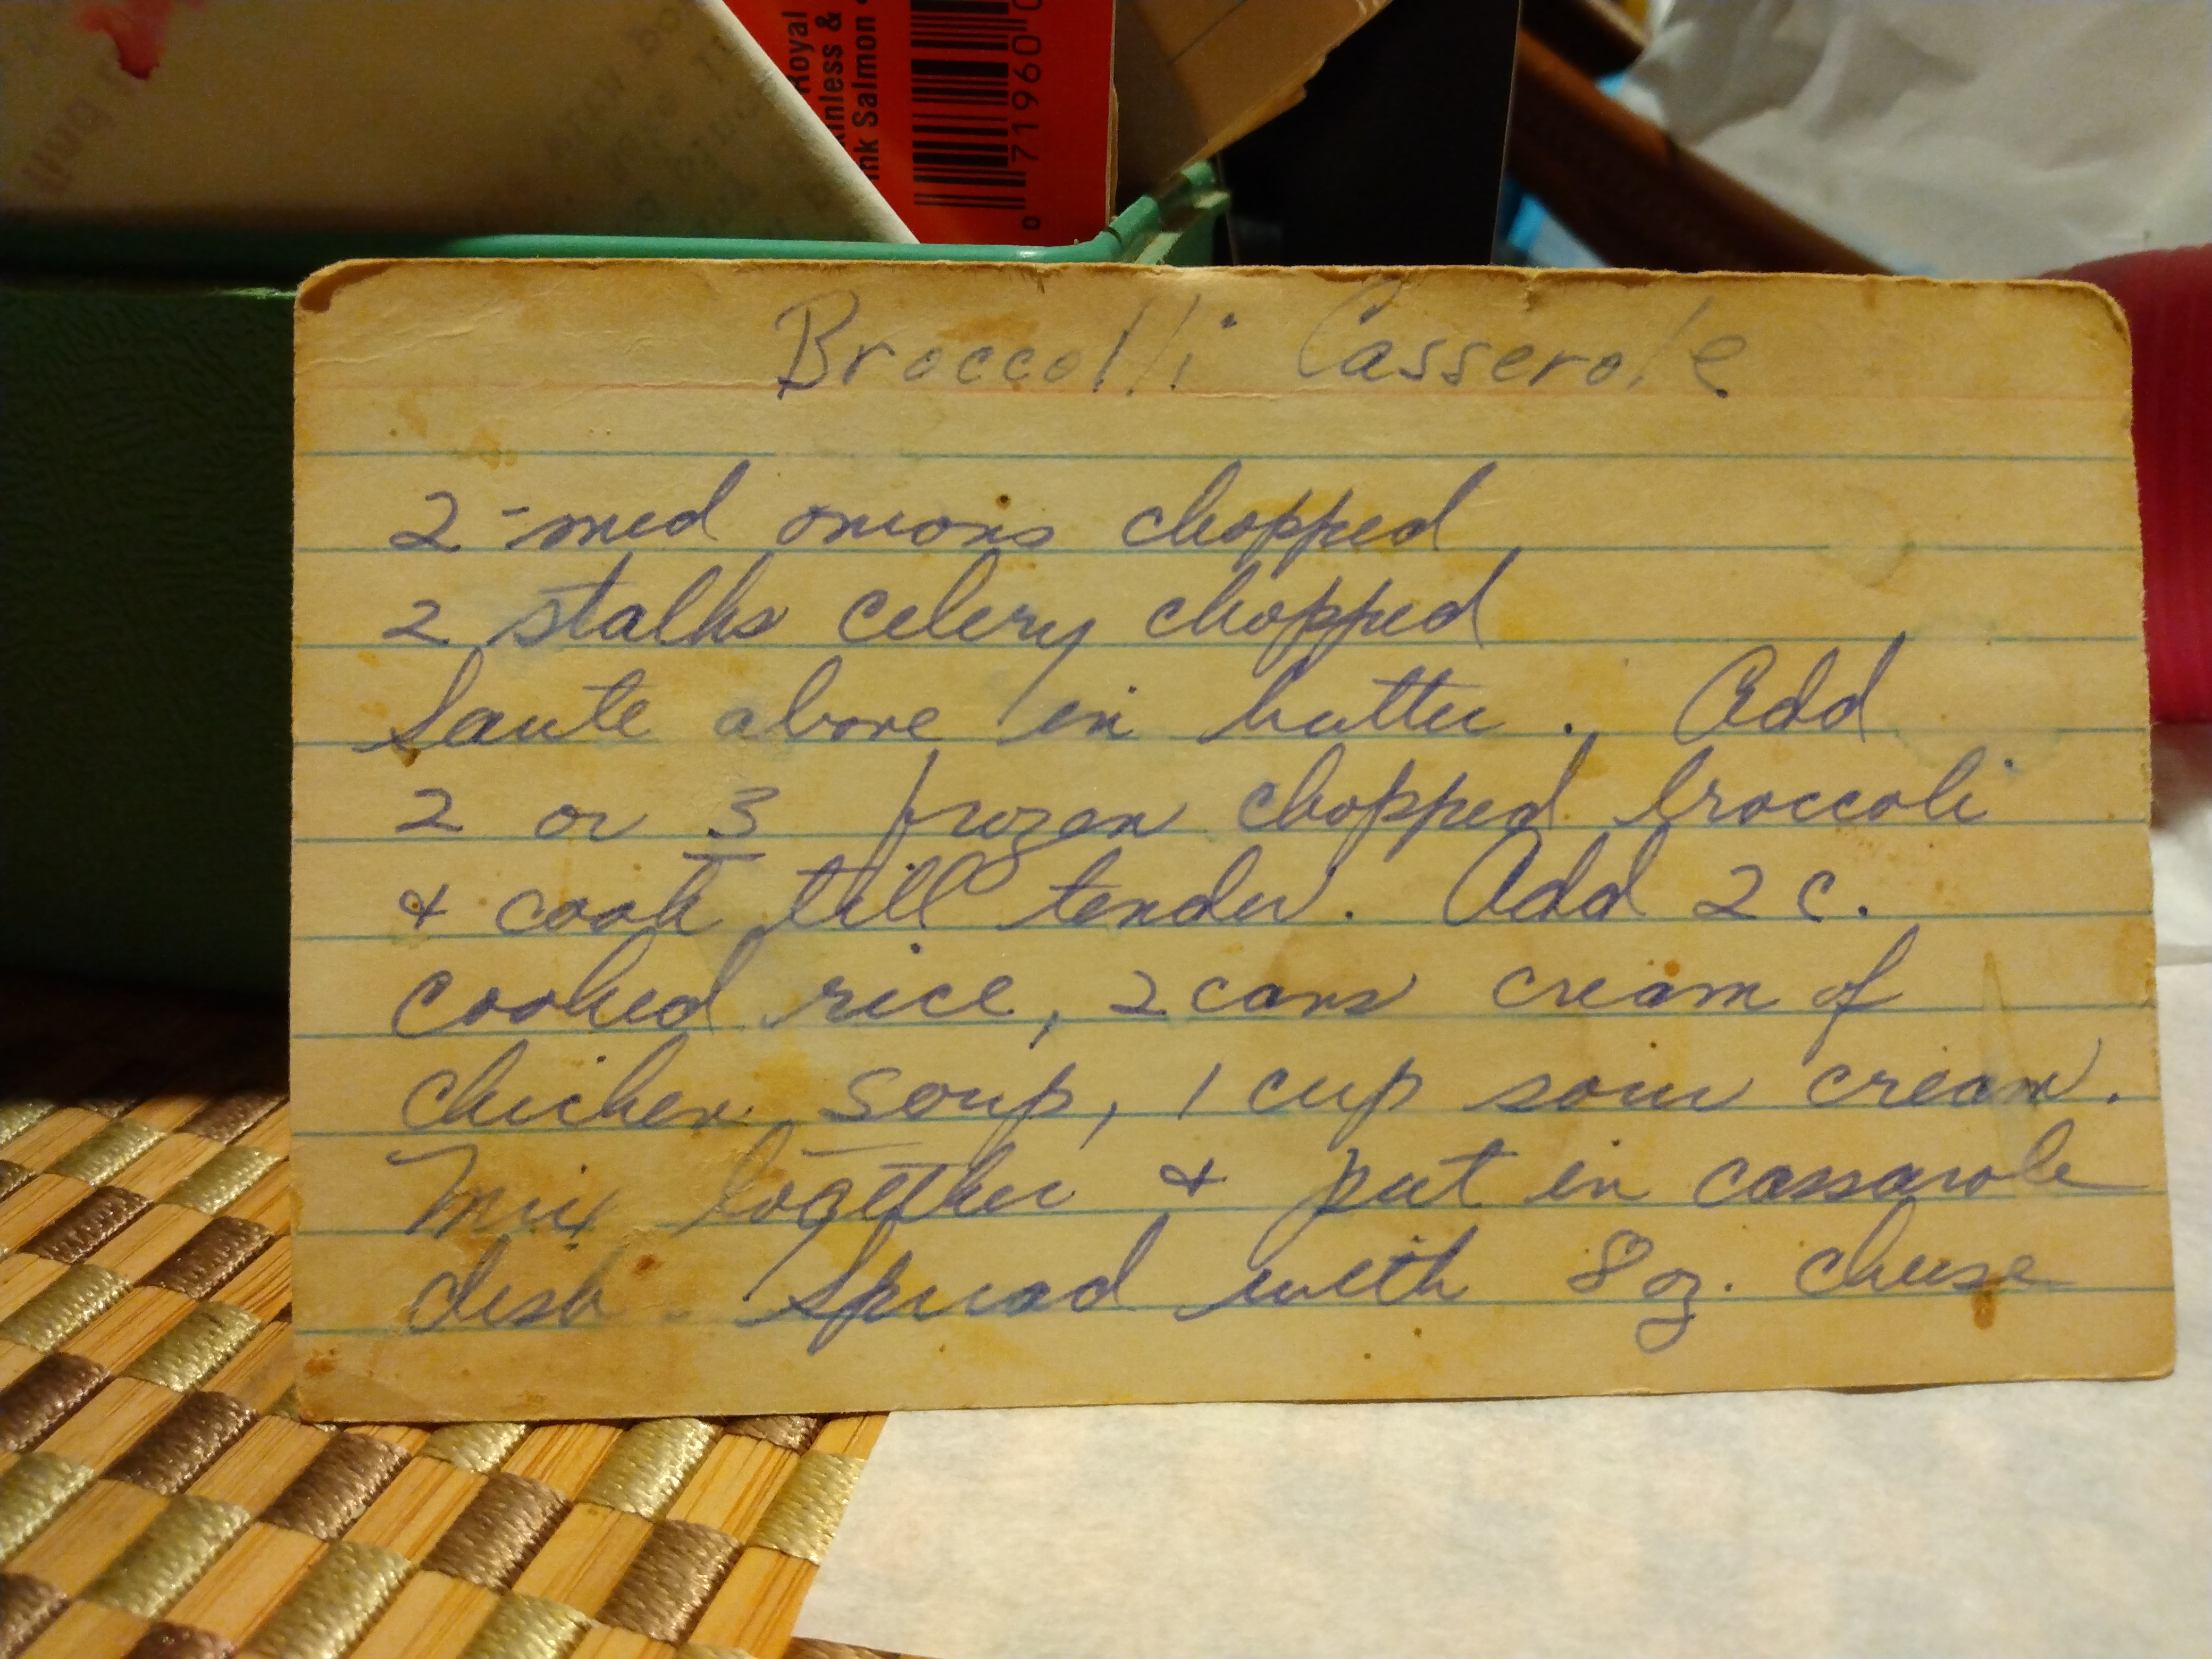 Royal
ink Salmon
0 71960 0
Broccolli Casserole
2-med onions chopped
2 stalks celery chopped
Saute above in butter. Add
2 or 3 frozen chopped broccoli
& cook till tender. Add 2 c.
cooked rice, 2 cans cream of
chicken soup, 1 cup sour cream.
Mix together & put in cassarole
dish. Spread with 8 oz. cheese